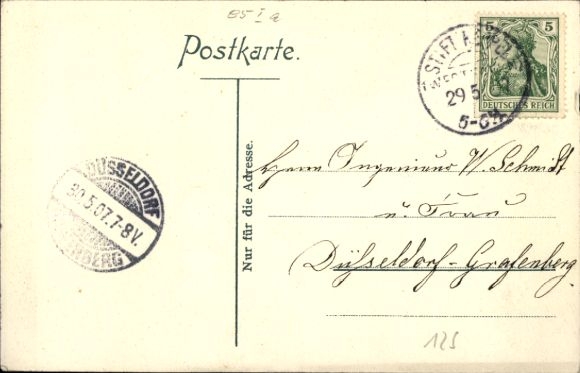 85 I a
Postkarte.
5
DEUTSCHES REICH
STIFT
29 5
DÜSSELDORF
30.5.07.7-8V.
Nur für die Adresse.
Herrn Ingenieur W. Schmidt
u. Frau
Düsseldorf-Grafenberg
125